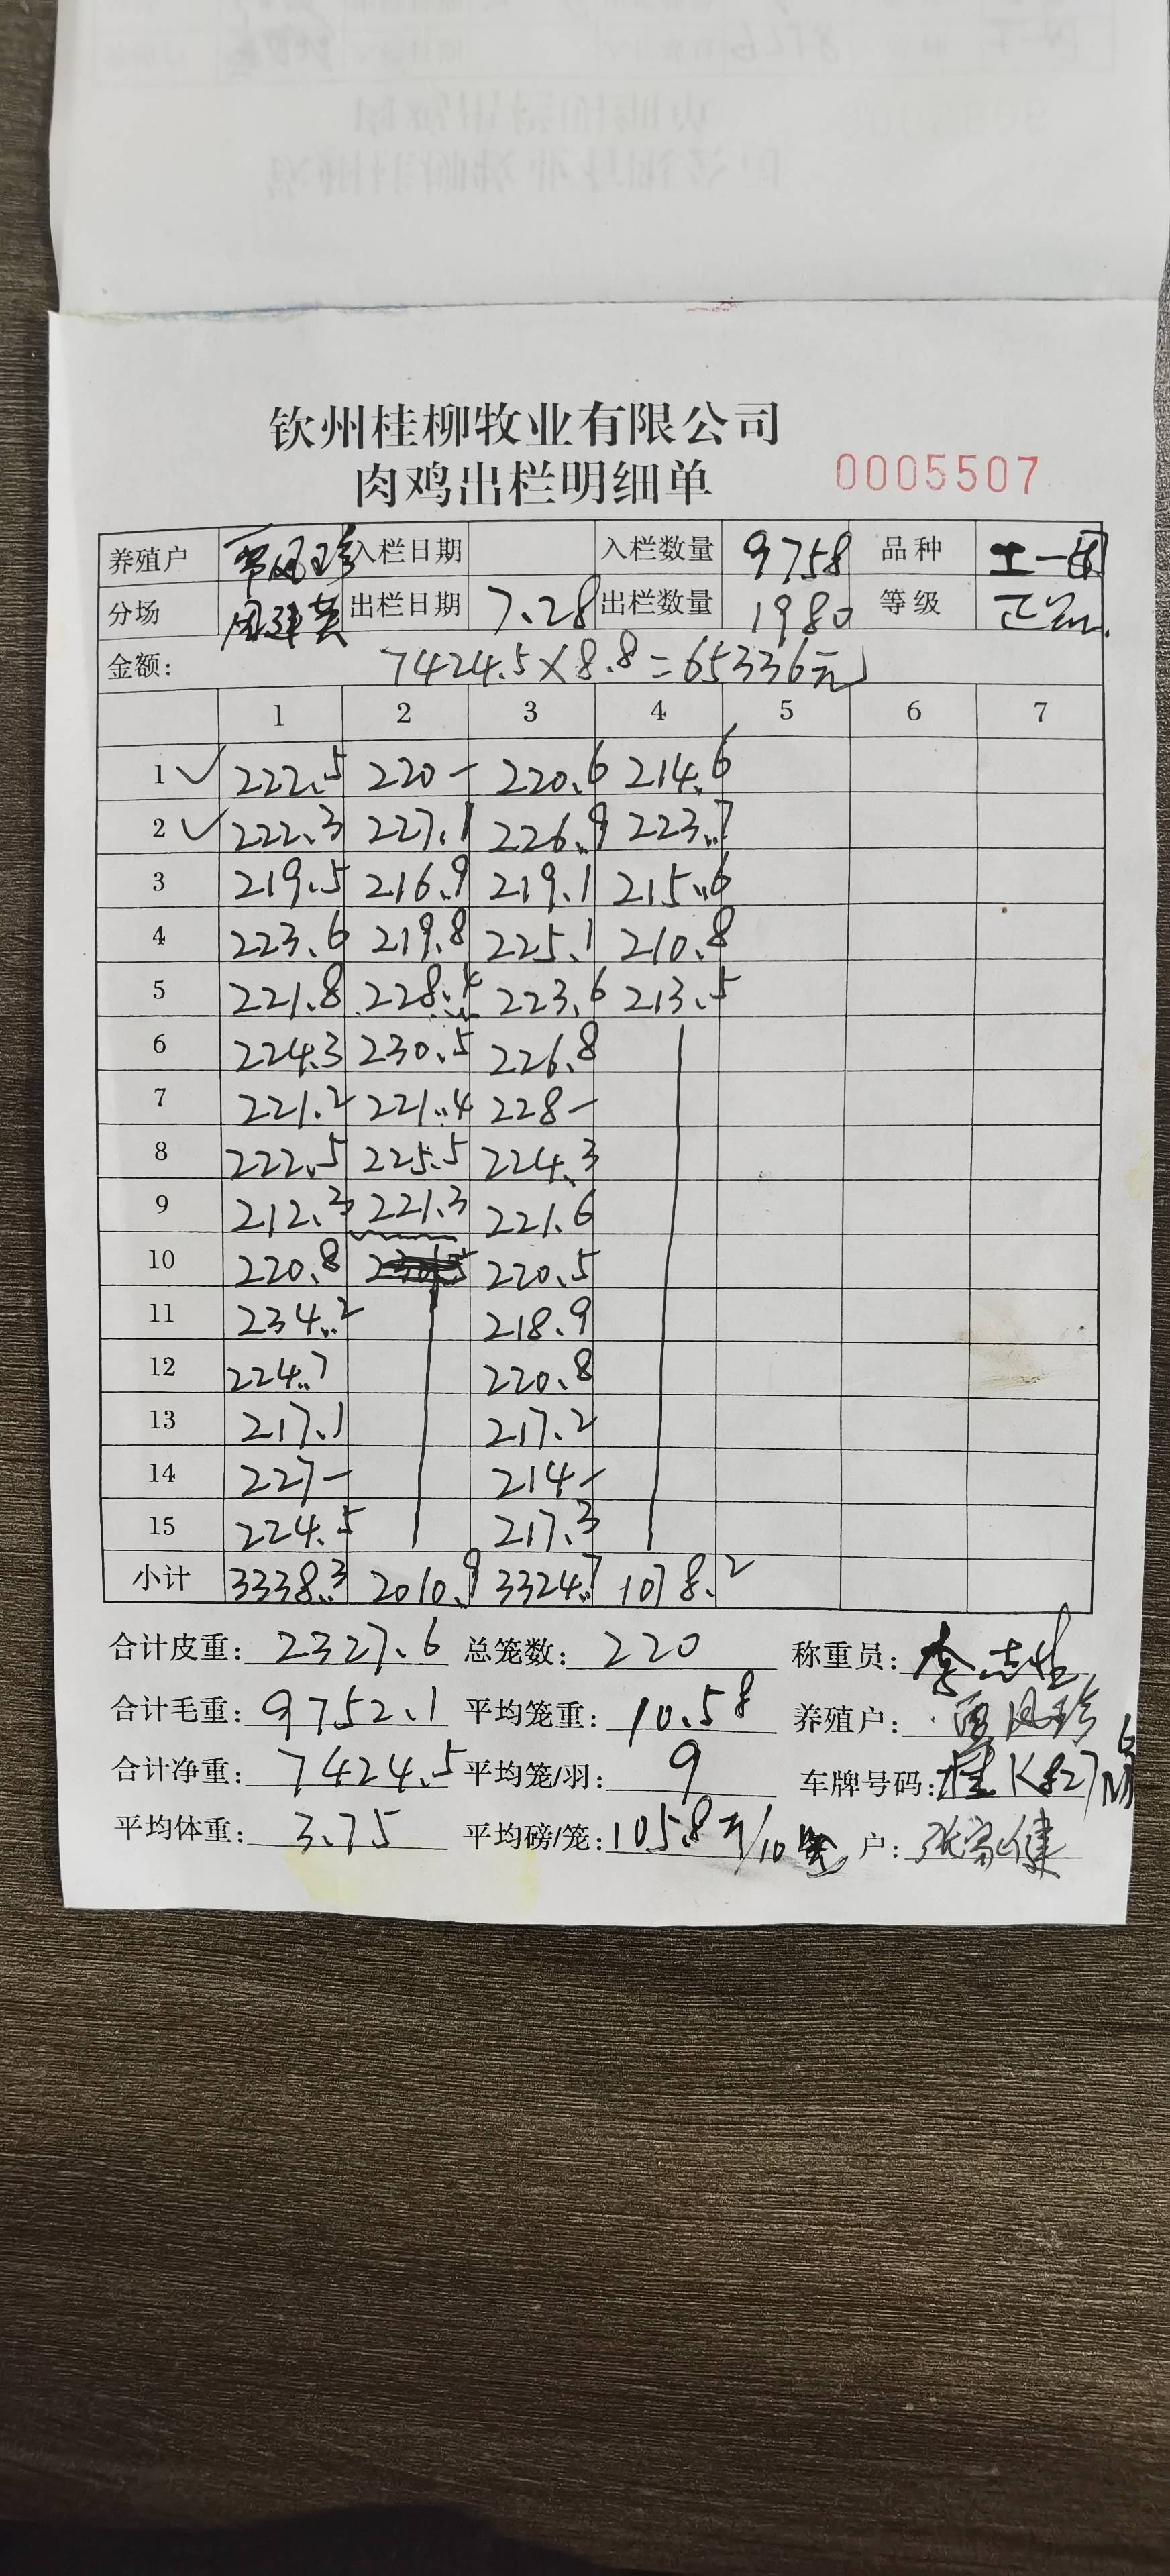 钦州桂柳牧业有限公司
肉鸡出栏明细单 0005507
养殖户 凤珍 入栏日期 入栏数量 9758 品种 土一
分场 周建英 出栏日期 7.28 出栏数量 1980 等级 正品
金额: 7424.5×8.8=65336元
1 2 3 4 5 6 7
1 ✓ 222.5 220- 220.6 214.6
2 ✓ 222.3 227.1 226.9 223.7
3 219.5 216.9 219.1 215.6
4 223.6 219.8 225.1 210.8
5 221.8 228.4 223.6 213.5
6 224.3 230.5 226.8
7 221.2 221.4 228-
8 222.5 225.5 224.3
9 212.3 221.3 221.6
10 220.8 220.5
11 234.2 218.9
12 224.7 220.8
13 217.1 217.2
14 227- 214-
15 224.5 217.3
小计 3338.3 2010.9 3324.7 1078.2
合计皮重: 2327.6 总笼数: 220 称重员: 李志
合计毛重: 9752.1 平均笼重: 10.58 养殖户: 凤珍
合计净重: 7424.5 平均笼/羽: 9 车牌号码: 桂K827
平均体重: 3.75 平均磅/笼: 105.8斤/10笼 户: 张富健